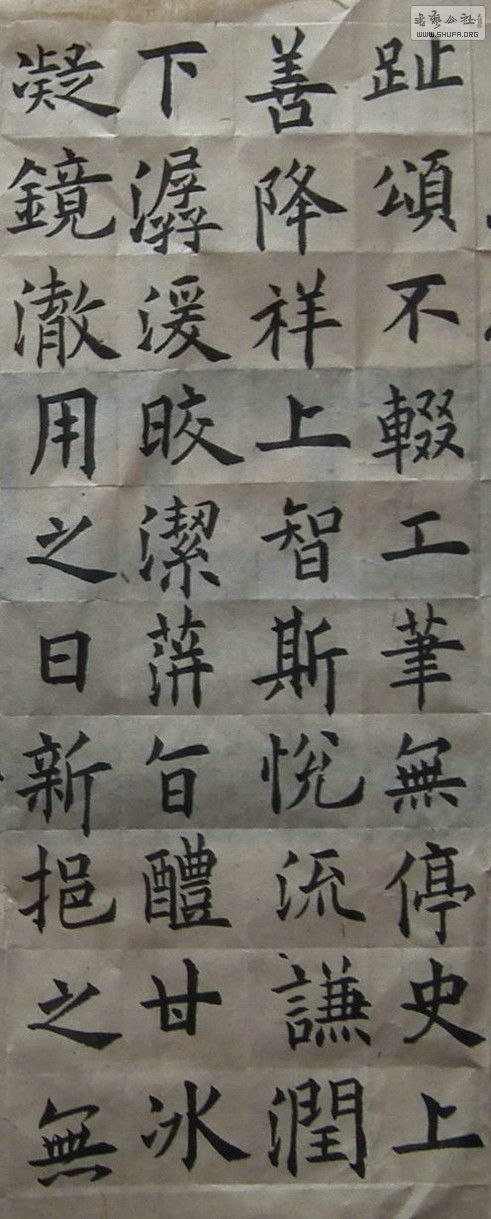 趾頌不輟工筆無停史上
善降祥上智斯悅流謙潤
下潺湲晈潔蓱旨醴甘冰
凝鏡澈用之日新挹之無
書藝公社
WWW.SHUFA.ORG